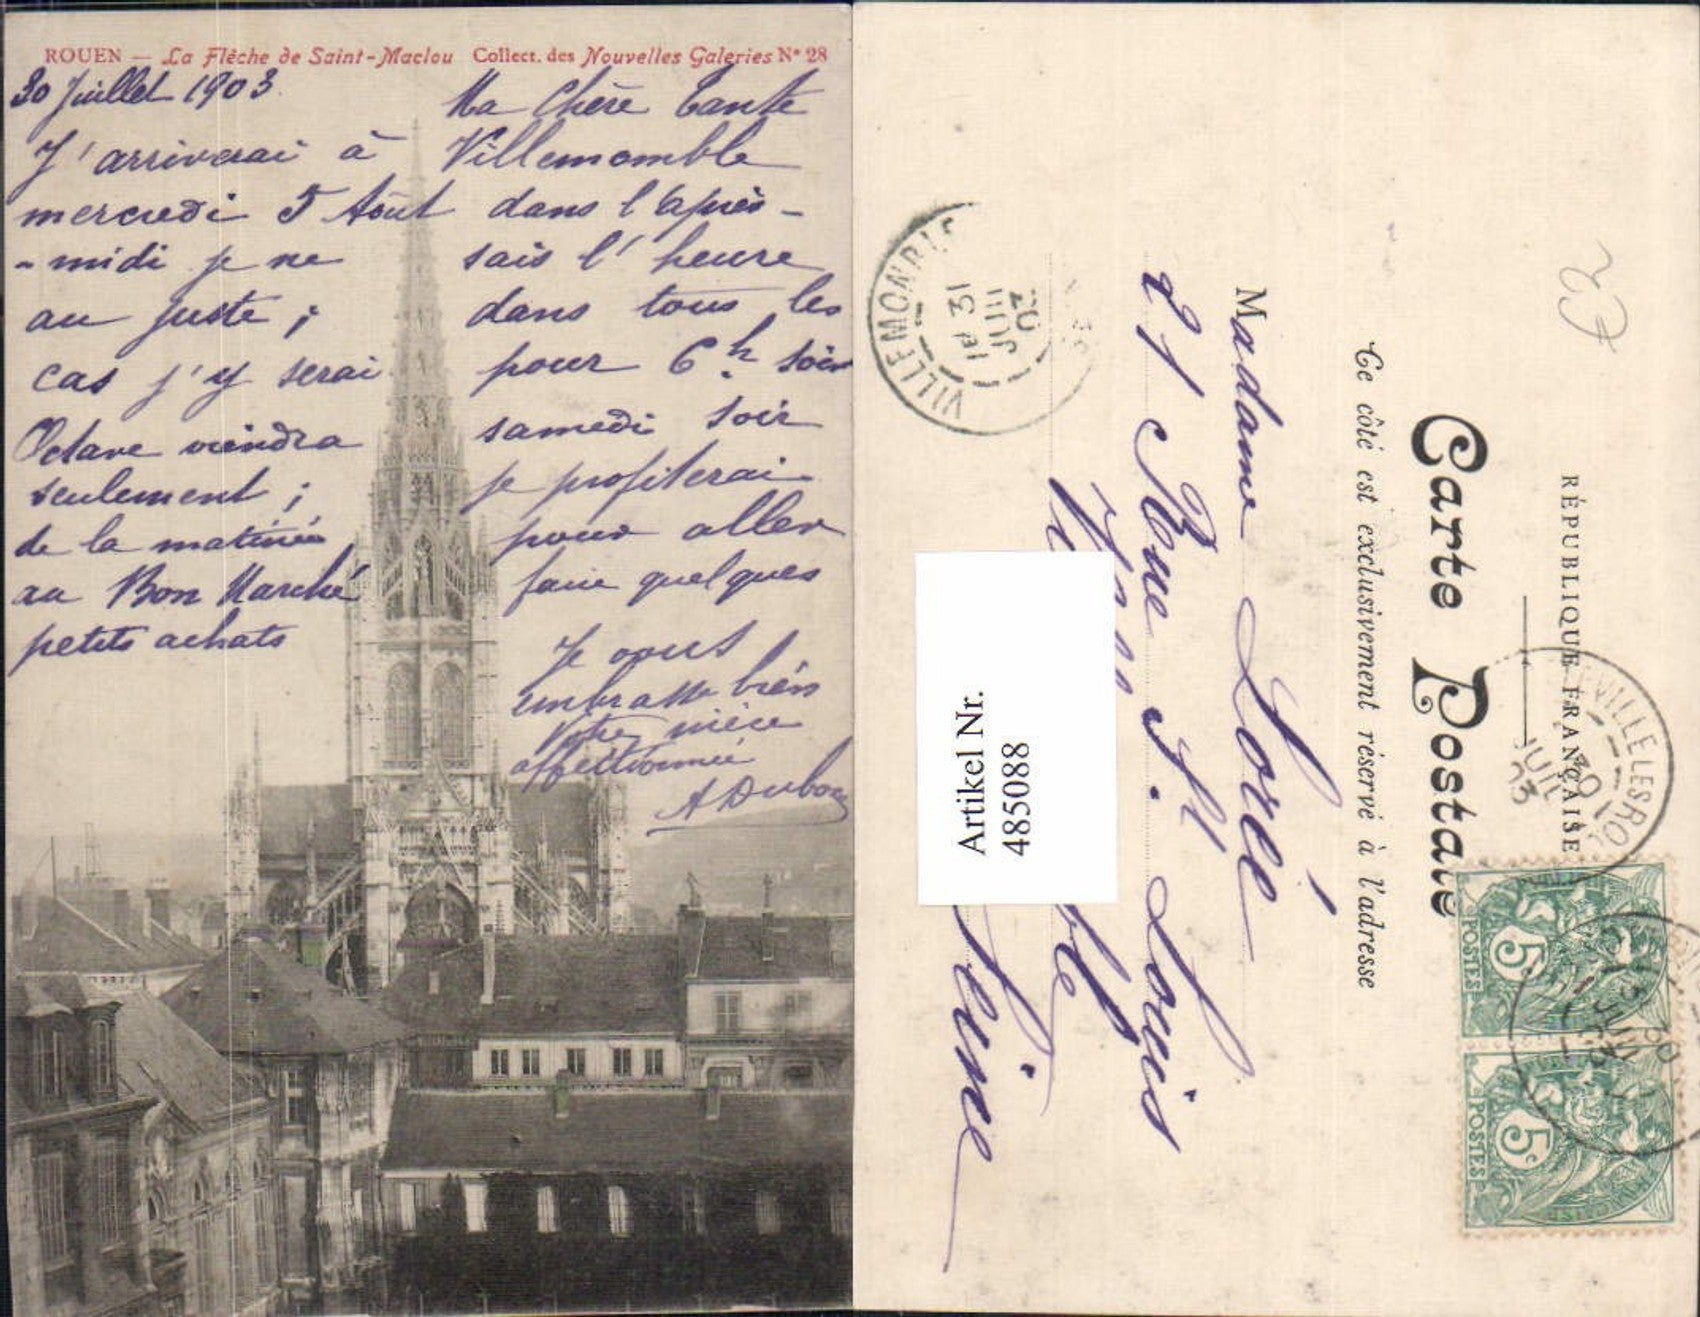 ROUEN — La Flèche de Saint-Maclou Collect. des Nouvelles Galeries N° 28
30 Juillet 1903
Ma Chère Tante
J'arriverai à Villemomble
mercredi 5 Août dans l'après-
-midi je ne sais l'heure
au juste ; dans tous les
cas j'y serai pour 6h. soir
Octave viendra samedi soir
seulement ; je profiterai
de la matinée pour aller
au Bon Marché faire quelques
petits achats
Je vous
embrasse bien
Votre nièce
affectionnée
A Dubos
RÉPUBLIQUE FRANÇAISE
Carte Postale
Ce côté est exclusivement réservé à l'adresse
Madame Lorée
21 Rue St. Louis
Seine
Artikel Nr.
485088
VILLEMOMBLE
31
JUIL
03
30
JUIL
03
5c
POSTES
5c
POSTES